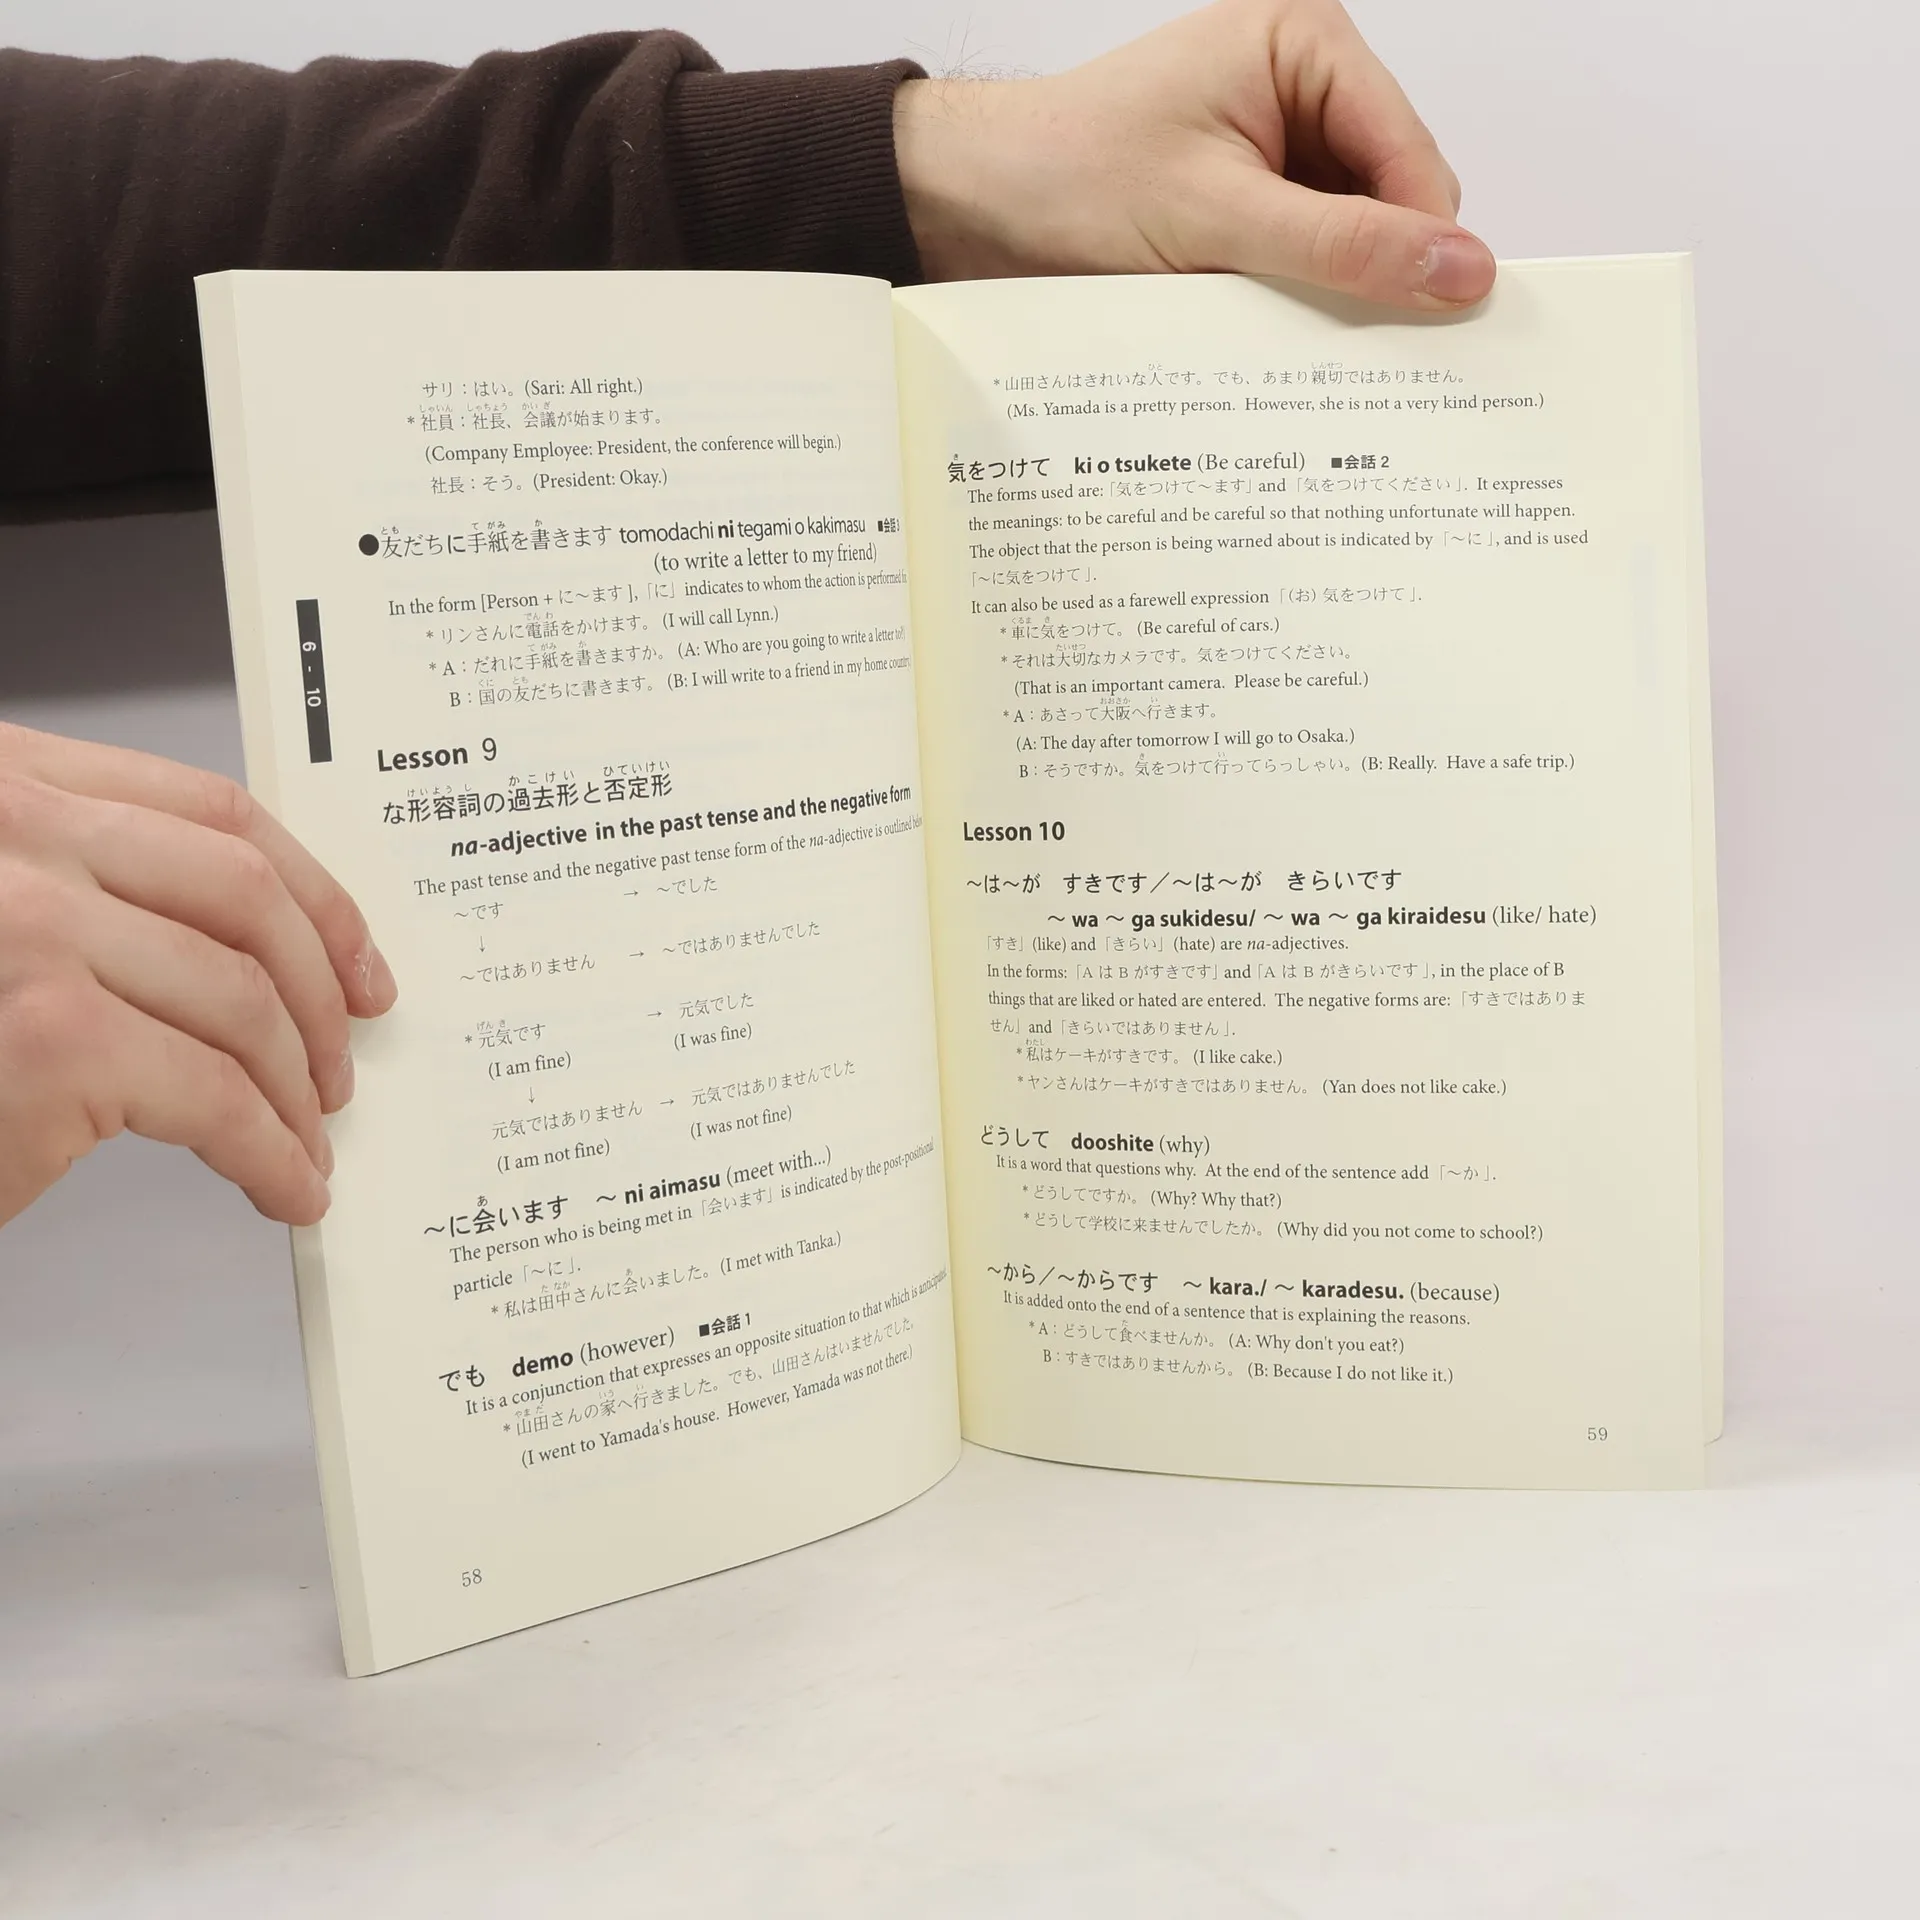 サリ：はい。(Sari: All right.)
＊社員：社長、会議が始まります。
(Company Employee: President, the conference will begin.)
社長：そう。(President: Okay.)
●友だちに手紙を書きます tomodachi ni tegami o kakimasu ■会話3
(to write a letter to my friend)
In the form [Person + に〜ます],「に」indicates to whom the action is performed
＊リンさんに電話をかけます。(I will call Lynn.)
＊A：だれに手紙を書きますか。(A: Who are you going to write a letter to?)
B：国の友だちに書きます。(B: I will write to a friend in my home country
6 - 10
Lesson 9
な形容詞の過去形と否定形
na-adjective in the past tense and the negative form
The past tense and the negative past tense form of the na-adjective is outlined
〜です → 〜でした
↓
〜ではありません → 〜ではありませんでした
＊元気です → 元気でした
(I am fine) (I was fine)
↓
元気ではありません → 元気ではありませんでした
(I am not fine) (I was not fine)
〜に会います 〜 ni aimasu (meet with...)
The person who is being met in「会います」is indicated by the post-positional
particle「〜に」.
＊私は田中さんに会いました。(I met with Tanka.)
でも demo (however) ■会話1
It is a conjunction that expresses an opposite situation to that which is anticipated.
＊山田さんの家へ行きました。でも、山田さんはいませんでした。
(I went to Yamada's house. However, Yamada was not there.)
58
＊山田さんはきれいな人です。でも、あまり親切ではありません。
(Ms. Yamada is a pretty person. However, she is not a very kind person.)
気をつけて ki o tsukete (Be careful) ■会話2
The forms used are:「気をつけて〜ます」and「気をつけてください」. It expresses
the meanings: to be careful and be careful so that nothing unfortunate will happen.
The object that the person is being warned about is indicated by「〜に」, and is used
「〜に気をつけて」.
It can also be used as a farewell expression「(お)気をつけて」.
＊車に気をつけて。(Be careful of cars.)
＊それは大切なカメラです。気をつけてください。
(That is an important camera. Please be careful.)
＊A：あさって大阪へ行きます。
(A: The day after tomorrow I will go to Osaka.)
B：そうですか。気をつけて行ってらっしゃい。(B: Really. Have a safe trip.)
Lesson 10
〜は〜が すきです／〜は〜が きらいです
〜 wa 〜 ga sukidesu/ 〜 wa 〜 ga kiraidesu (like/ hate)
「すき」(like) and「きらい」(hate) are na-adjectives.
In the forms:「AはBがすきです」and「AはBがきらいです」, in the place of B
things that are liked or hated are entered. The negative forms are:「すきではありま
せん」and「きらいではありません」.
＊私はケーキがすきです。(I like cake.)
＊ヤンさんはケーキがすきではありません。(Yan does not like cake.)
どうして dooshite (why)
It is a word that questions why. At the end of the sentence add「〜か」.
＊どうしてですか。(Why? Why that?)
＊どうして学校に来ませんでしたか。(Why did you not come to school?)
〜から／〜からです 〜 kara./ 〜 karadesu. (because)
It is added onto the end of a sentence that is explaining the reasons.
＊A：どうして食べませんか。(A: Why don't you eat?)
B：すきではありませんから。(B: Because I do not like it.)
59